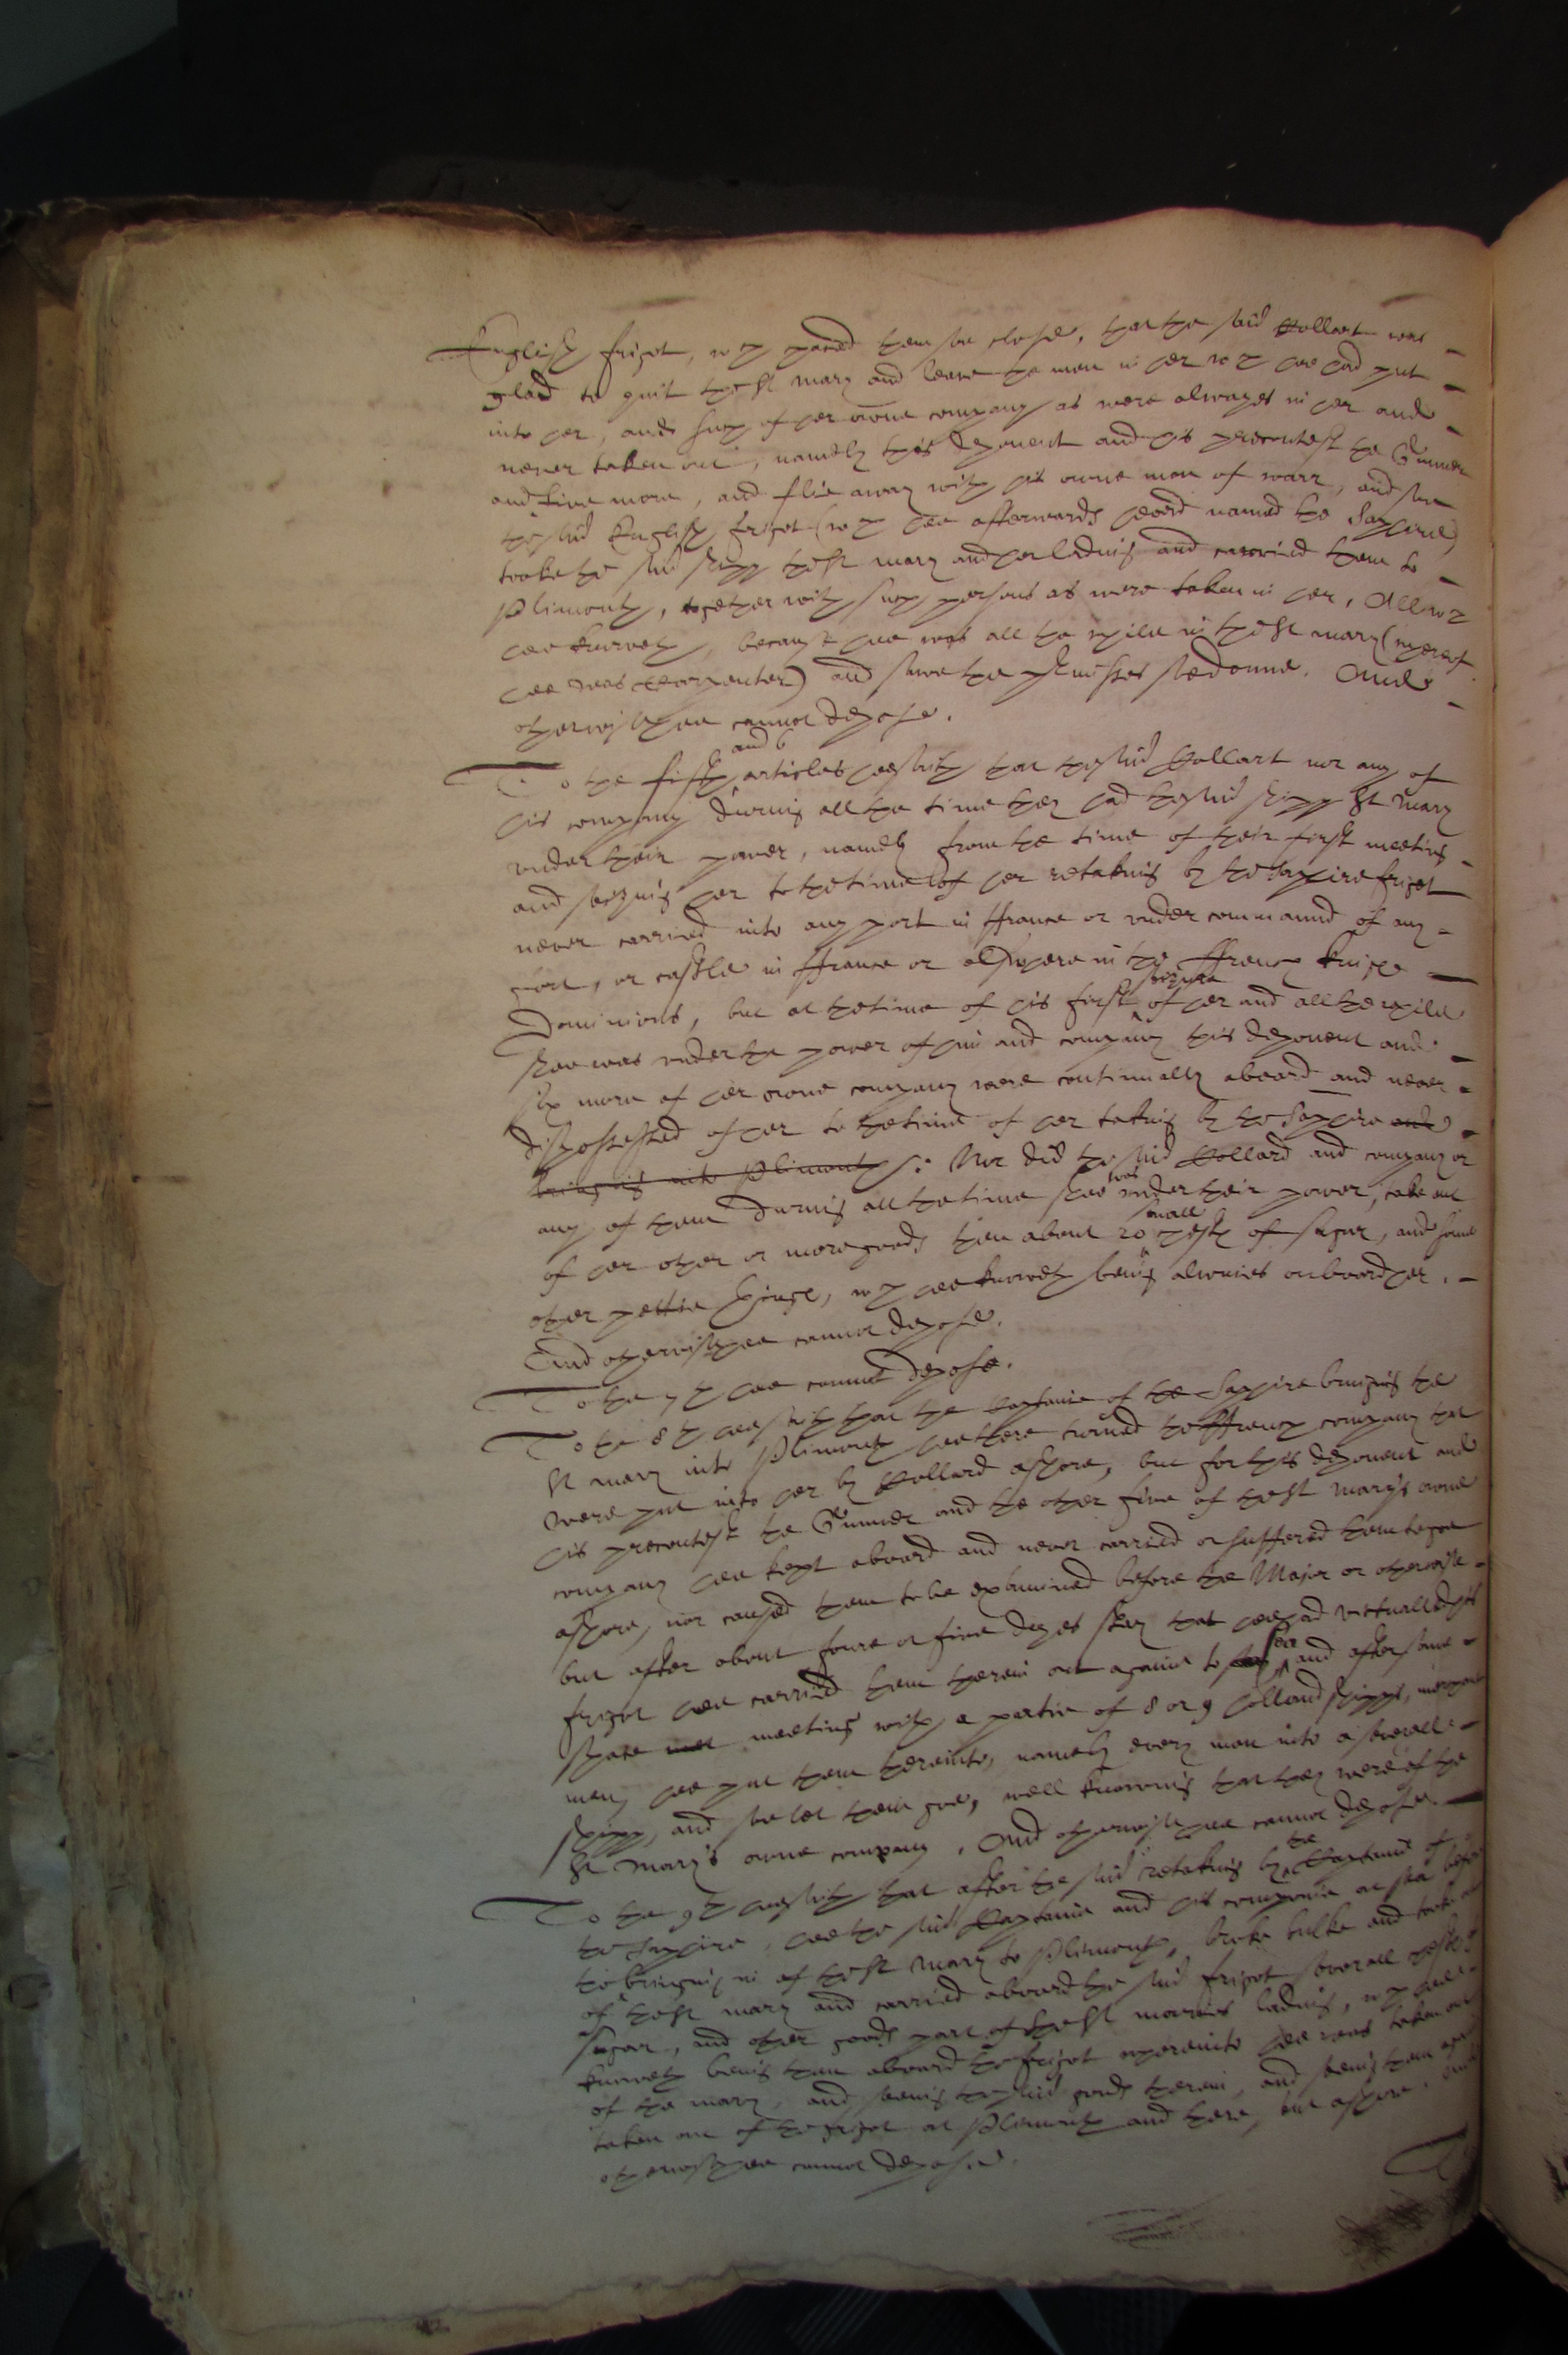 English frigot, wch pased them soe close, that the said Collart was
glad to quit the St Mary and leave the men in her wch hee had put
into her, and such of her owne company as were alwayes in her and
never taken out, namely this deponent and his precontest the Gunner
and five more, and flie away with his owne man of warr, and soe
the said English frigot (wch hee afterwards heard named the Saphire)
tooke the said shipp the St Mary and her lading and carried them to
Plimouth, together with such persons as were taken in her, All wch
hee knoweth, because hee was all the while in the St Mary (whereof
hee was Carpenter) and sawe the premisses soe donne. And
otherwise hee cannot depose.
To the fifth and 6 articles hee saith that the said Collart nor any of
his company during all the time they had the said shipp St Mary
under their power, namely from the time of their first meeting
and seizing her to the time of her retaking by the Saphire frigot
never carried into any port in ffrance or under command of any
fort, or castle in ffrance or elswhere in the ffrench kings
Dominions, but at the time of his first seizure of her and all the while
shee was under the power of him and company this deponent and
six more of her owne company were continually aboard and never
dispossessed of her to the time of her taking by the Saphire and
bringing into Plimouth. Nor did the said Collard and company or
any of them during all the time shee was under their power, take out
of her other or more goods then about 20 small chests of sugar, and some
other pettie things, wch hee knoweth being alwaies on board her.
And otherwise hee cannot depose.
To the 7th hee cannot depose.
To the 8th hee saith that the Captaine of the Saphire bringing the
St Mary into Plimouth hee there turned the ffrench company that
were put into her by Collard ashore, but for this deponent and
his precontest the Gunner and the other five of the St Mary's owne
company hee kept aboard and never carried or suffered them to goe
ashore, nor caused them to be examined before the Major or otherwise
but after about foure or five dayes stay that hee had victualled his
frigot hee carried them therein out againe to sea, and after some
space met meeting with a partie of 8 or 9 holland shipps, merchant
men, hee put them thereinto, namely every man into a severall
shipp, and soe let them goe, well knowing that they were of the
St Mary's owne company. And otherwise hee cannot depose.
To the 9th hee saith that after the said retaking by the Captaine of
the Saphire, hee the said Captaine and his companie at sea before
the bringing in of the St Mary to Plimouth, broke bulke and tooke out
of the St Mary and carried aboard the said frigot severall chests of
sugar, and other goods part of the St Maries lading, wch hee
knoweth being then aboard the frigot whereinto hee was taken out
of the Mary, and seeing the said goods therein, and seeing them
taken out of the frigot at Plimouth and there, put ashore. And
otherwise hee cannot depose.